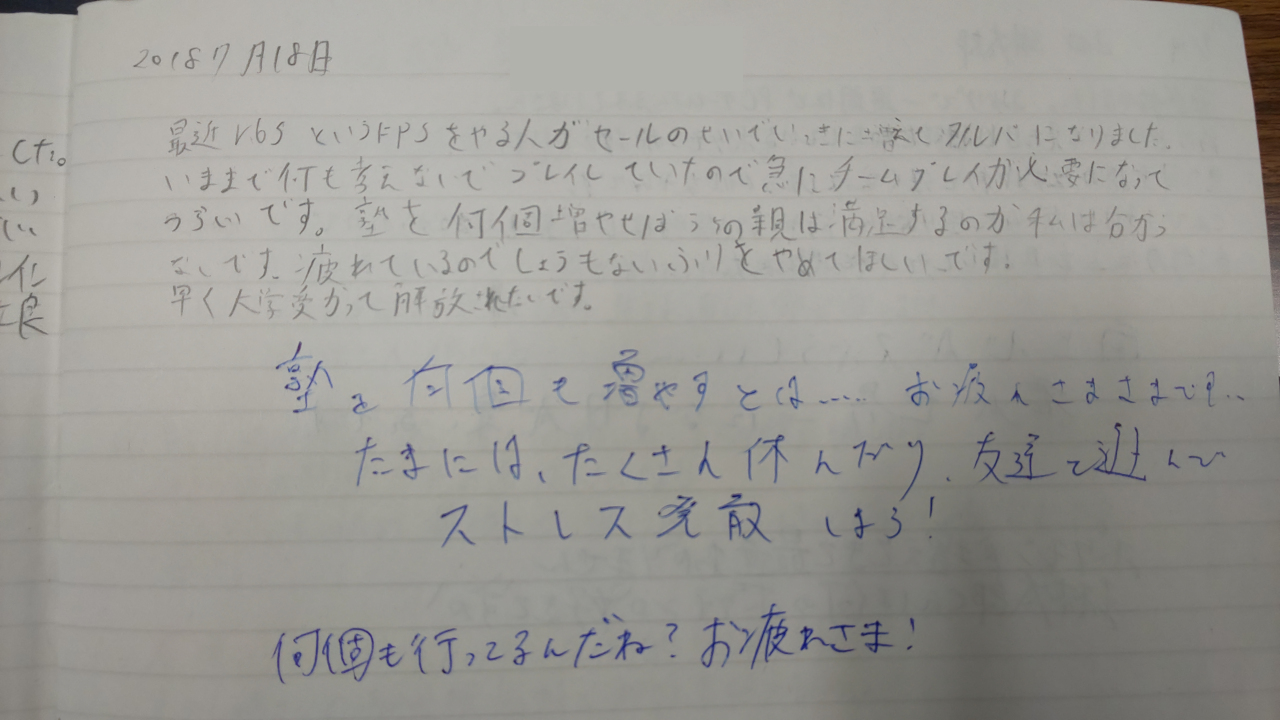 2018 7月18日
した。
最近r6sというFPSをやる人がセールのせいでいっきに増えてフルパになりました。
いままで何も考えないでプレイしていたので急にチームプレイが必要になって
つらいです。塾を何個増やせばうちの親は満足するのか私は分から
ないです。疲れているのでしょうもないふりをやめてほしいです。
早く大学受かって解放されたいです。
良
塾を何個も増やすとは..... お疲れさまさまです..
たまには、たくさん休んだり、友達と遊んで
ストレス発散しよう!
何個も行ってるんだね?お疲れさま!